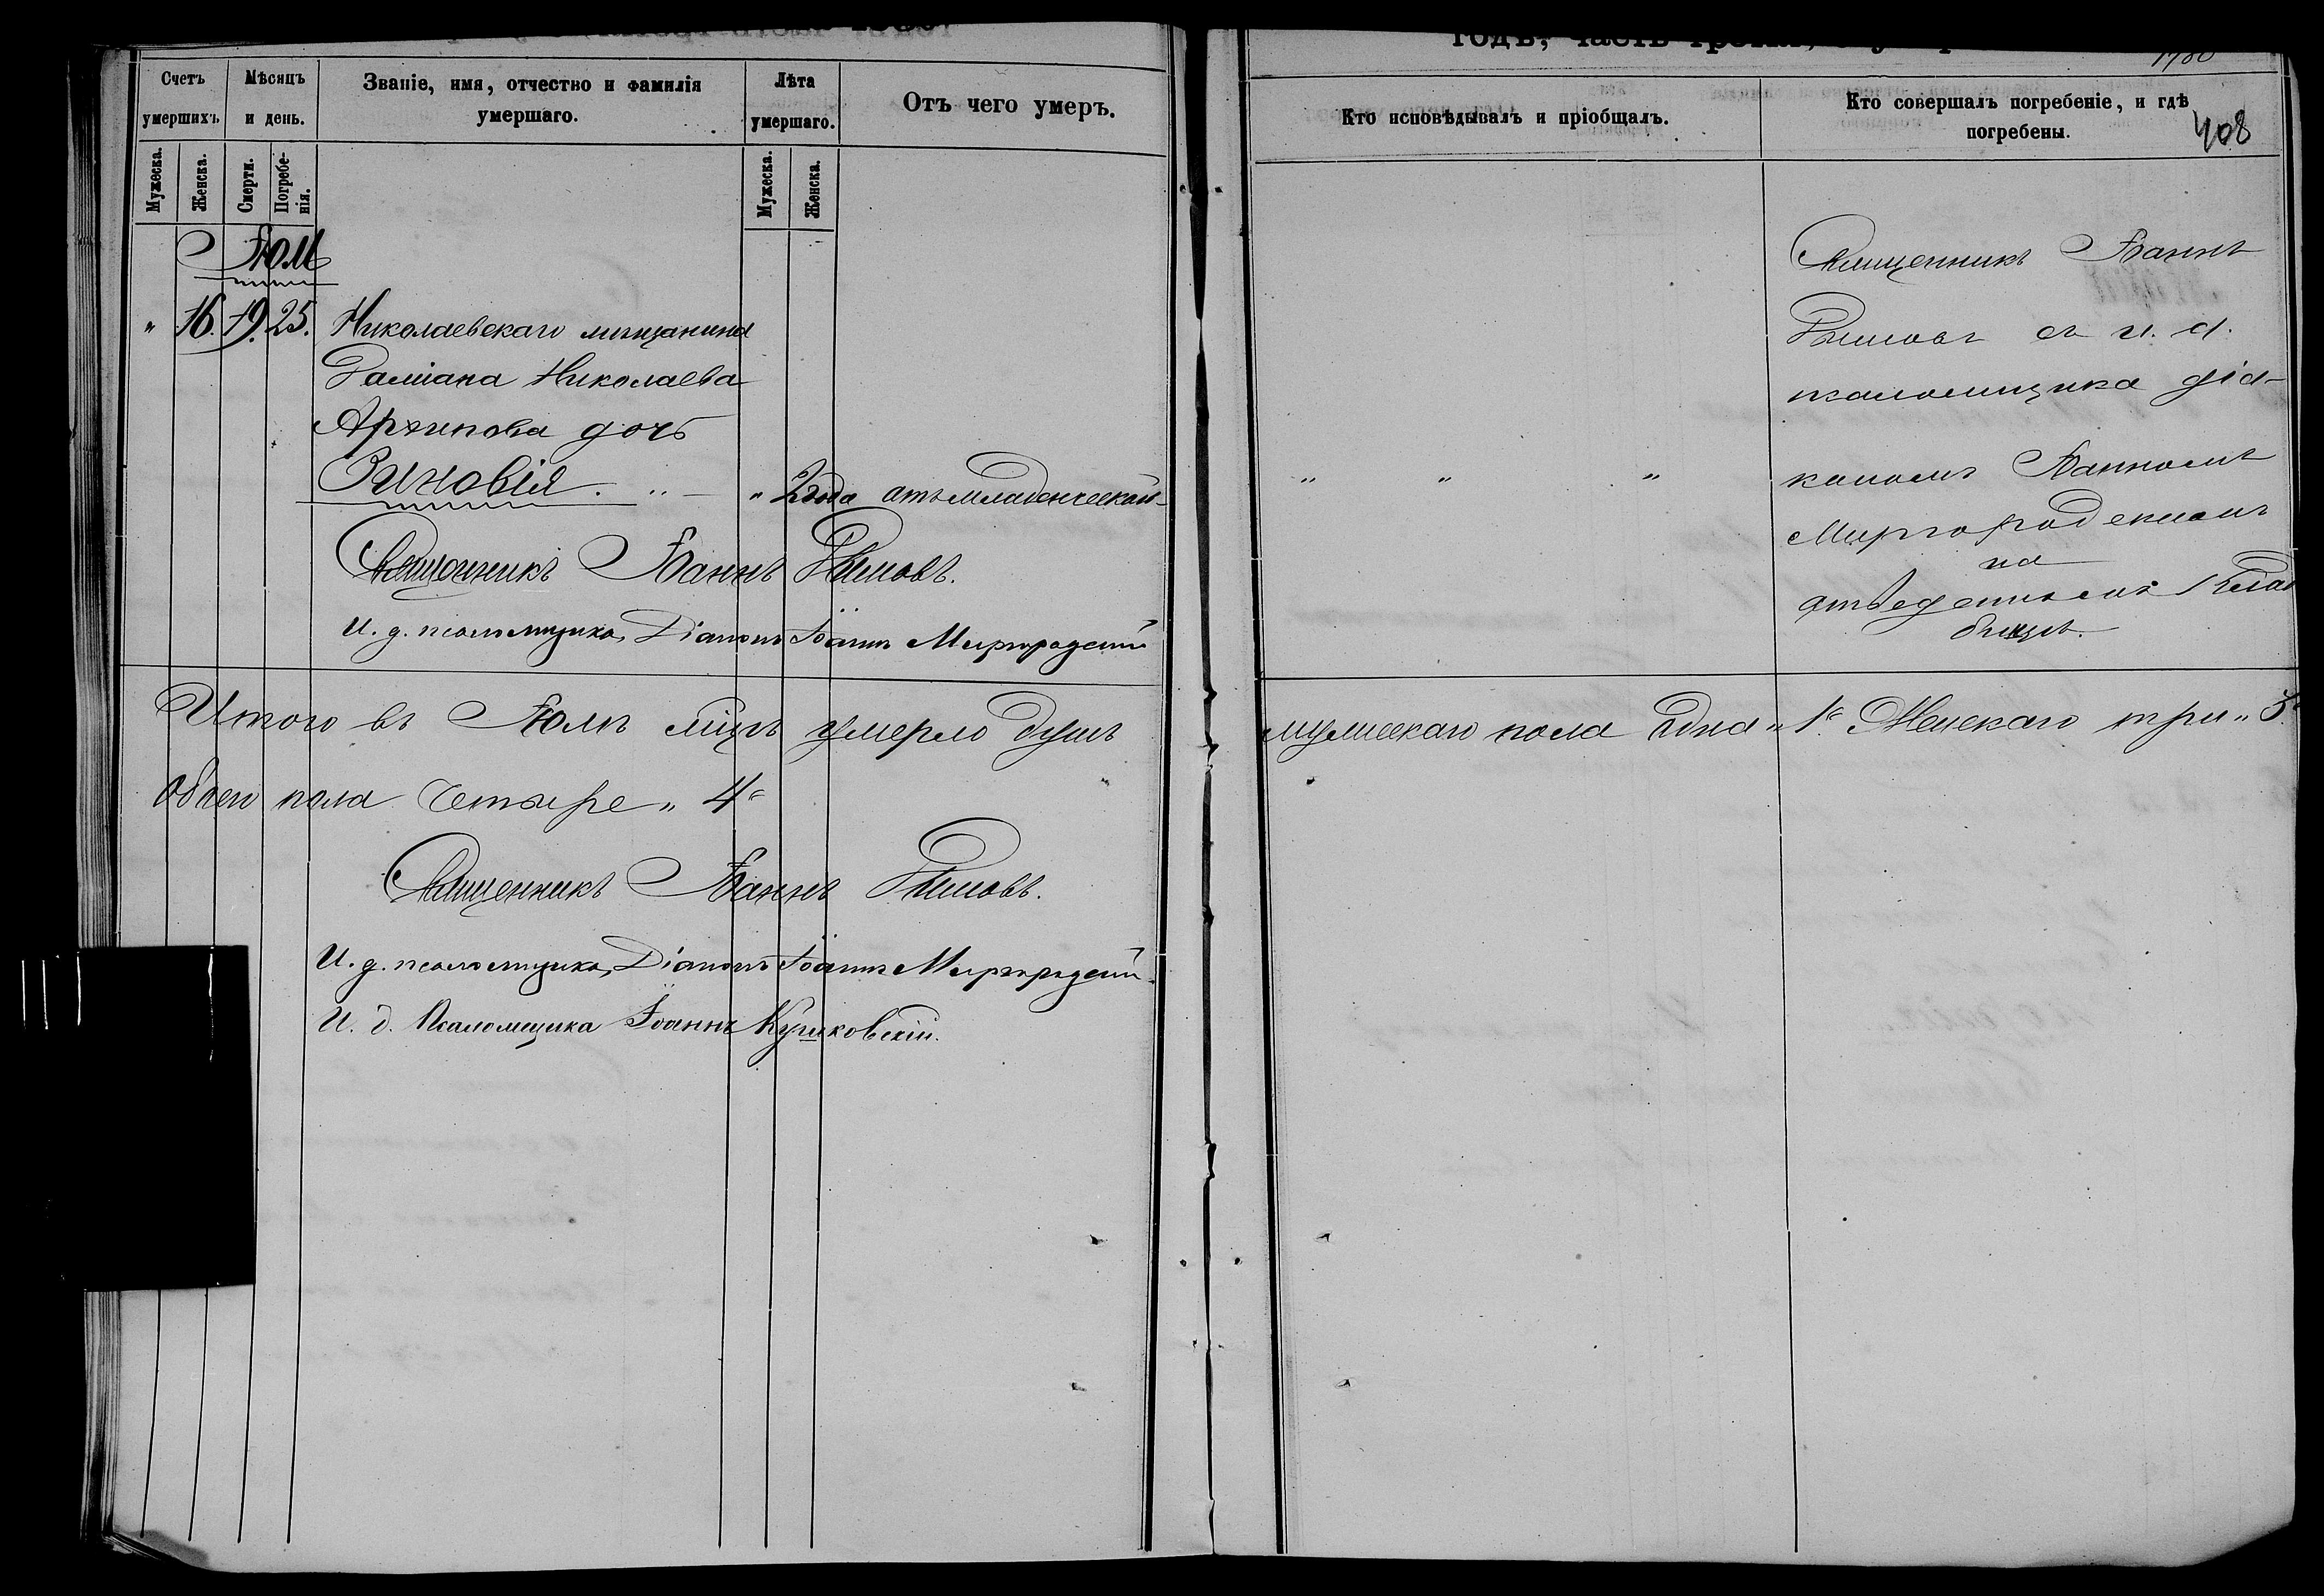 годъ, часть третья,
408
Счетъ умершихъ.
Мѣсяцъ и день.
Званіе, имя, отчество и фамилія умершаго.
Лѣта умершаго.
Отъ чего умеръ.
Кто исповѣдывалъ и пріобщалъ.
Кто совершалъ погребеніе, и гдѣ погребены.
Мужеска.
Женска.
Смерти.
Погребенія.
Мужеска.
Женска.
Іюль
" 16. 19. 25. Николаевскаго мѣщанина
Даміана Николаева
Архипова дочь
Зиновія " 2 года отъ младенческой
Священникъ Іоаннъ
И. д. псаломщика, Діаконъ Іоаннъ Миргородскій
" " "
Священникъ Іоаннъ
съ и. д.
псаломщика діа-
кономъ Іоанномъ
Миргородскимъ
на
отведенномъ клад
бищѣ.
Итого въ Іюлѣ мцѣ умерло душъ мужескаго пола одна „1“ Женскаго три „3“
обоего пола четыре „4“
Священникъ Іоаннъ
И. д. псаломщика, Діаконъ Іоаннъ Миргородскій
И. д. Псаломщика Іоаннъ Кушковскій.